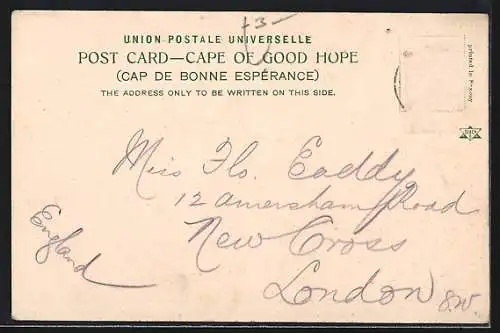 -3-
UNION POSTALE UNIVERSELLE
POST CARD—CAPE OF GOOD HOPE
(CAP DE BONNE ESPÉRANCE)
THE ADDRESS ONLY TO BE WRITTEN ON THIS SIDE.
printed in Saxony
Miss Flo. Eaddy
12 Amersham Road
New Cross
London S.W.
England